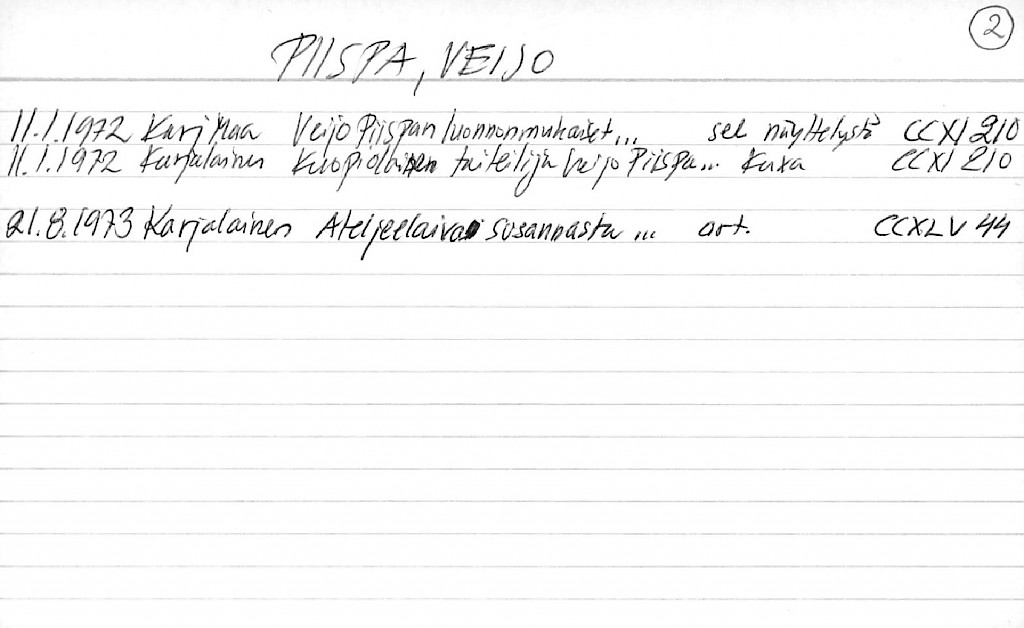 2
PIISPA, VEIJO
11.1.1972 Karj Maa Veijo Piispan luonnonmukaiset... sel näyttelystä CCXI 210
11.1.1972 Karjalainen Kuopiolainen taiteilija Veijo Piispa... kuva CCXI 210
21.8.1973 Karjalainen Ateljeelaiva Susannasta ... art. CCXLV 44